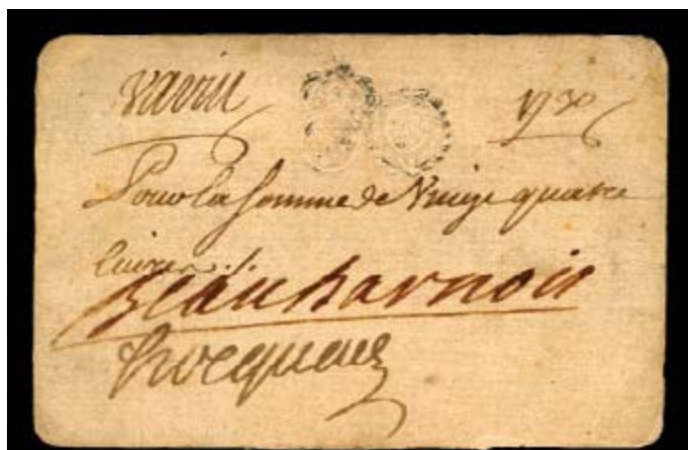 Varin 1730
Pour la Somme de Vingt quatre
Livres
Beauharnois
hocquart